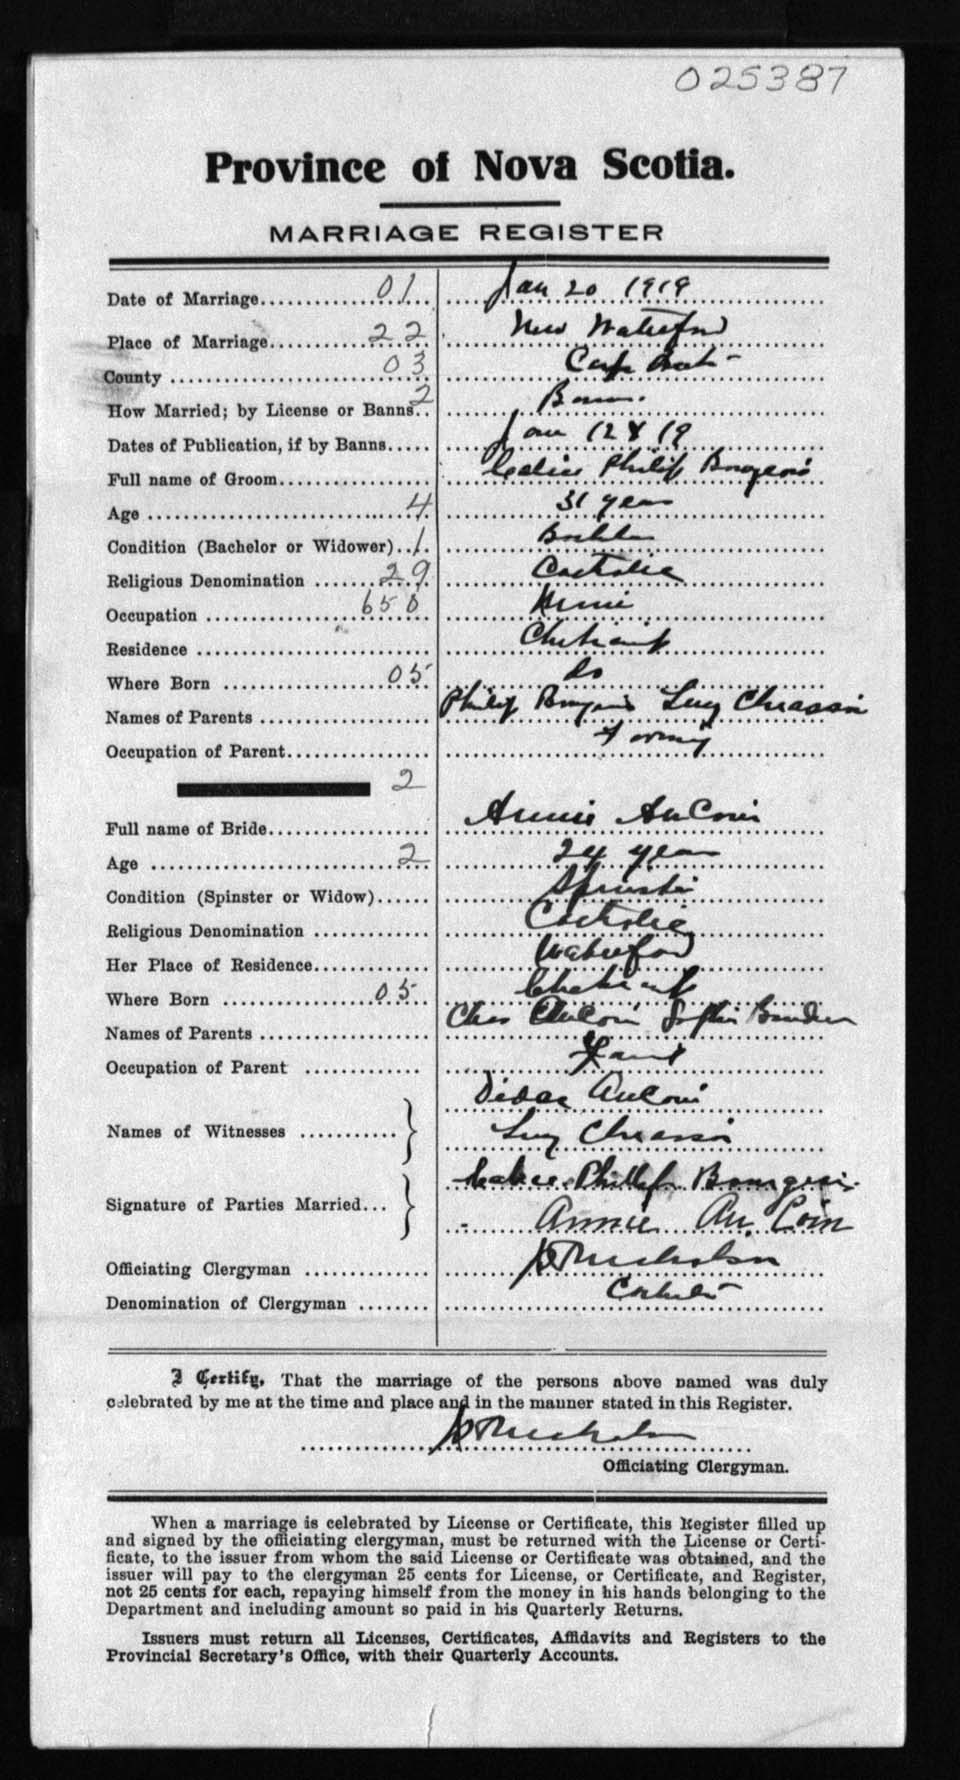 025387
Province of Nova Scotia.
MARRIAGE REGISTER
Date of Marriage 01 Jan 20 1919
Place of Marriage 22 New Waterford
County 03 Cape Breton
How Married; by License or Banns 2 Banns
Dates of Publication, if by Banns Jan 12 & 19
Full name of Groom Philip Bourgeois
Age 4 31 years
Condition (Bachelor or Widower) 1 Bachelor
Religious Denomination 29 Catholic
Occupation 650
Residence Cheticamp
Where Born 05 do
Names of Parents Philip Bourgeois Lucy Chiasson
Occupation of Parent Farming
2
Full name of Bride Annie AuCoin
Age 2 24 years
Condition (Spinster or Widow) Spinster
Religious Denomination Catholic
Her Place of Residence Waterford
Where Born 05 Cheticamp
Names of Parents Chas AuCoin Sophie
Occupation of Parent
Names of Witnesses AuCoin
Lucy Chiasson
Signature of Parties Married Phillip Bourgeois
Annie Au. Coin
Officiating Clergyman Nicholson
Denomination of Clergyman Catholic
I Certify, That the marriage of the persons above named was duly
celebrated by me at the time and place and in the manner stated in this Register.
Nicholson
Officiating Clergyman.
When a marriage is celebrated by License or Certificate, this Register filled up
and signed by the officiating clergyman, must be returned with the License or Certi-
ficate, to the issuer from whom the said License or Certificate was obtained, and the
issuer will pay to the clergyman 25 cents for License, or Certificate, and Register,
not 25 cents for each, repaying himself from the money in his hands belonging to the
Department and including amount so paid in his Quarterly Returns.
Issuers must return all Licenses, Certificates, Affidavits and Registers to the
Provincial Secretary's Office, with their Quarterly Accounts.